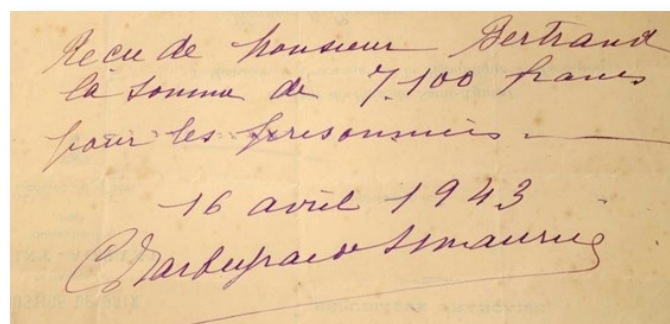 Recu de Monsieur Bertrand
la somme de 7.100 francs
pour les prisonniers. —
16 avril 1943